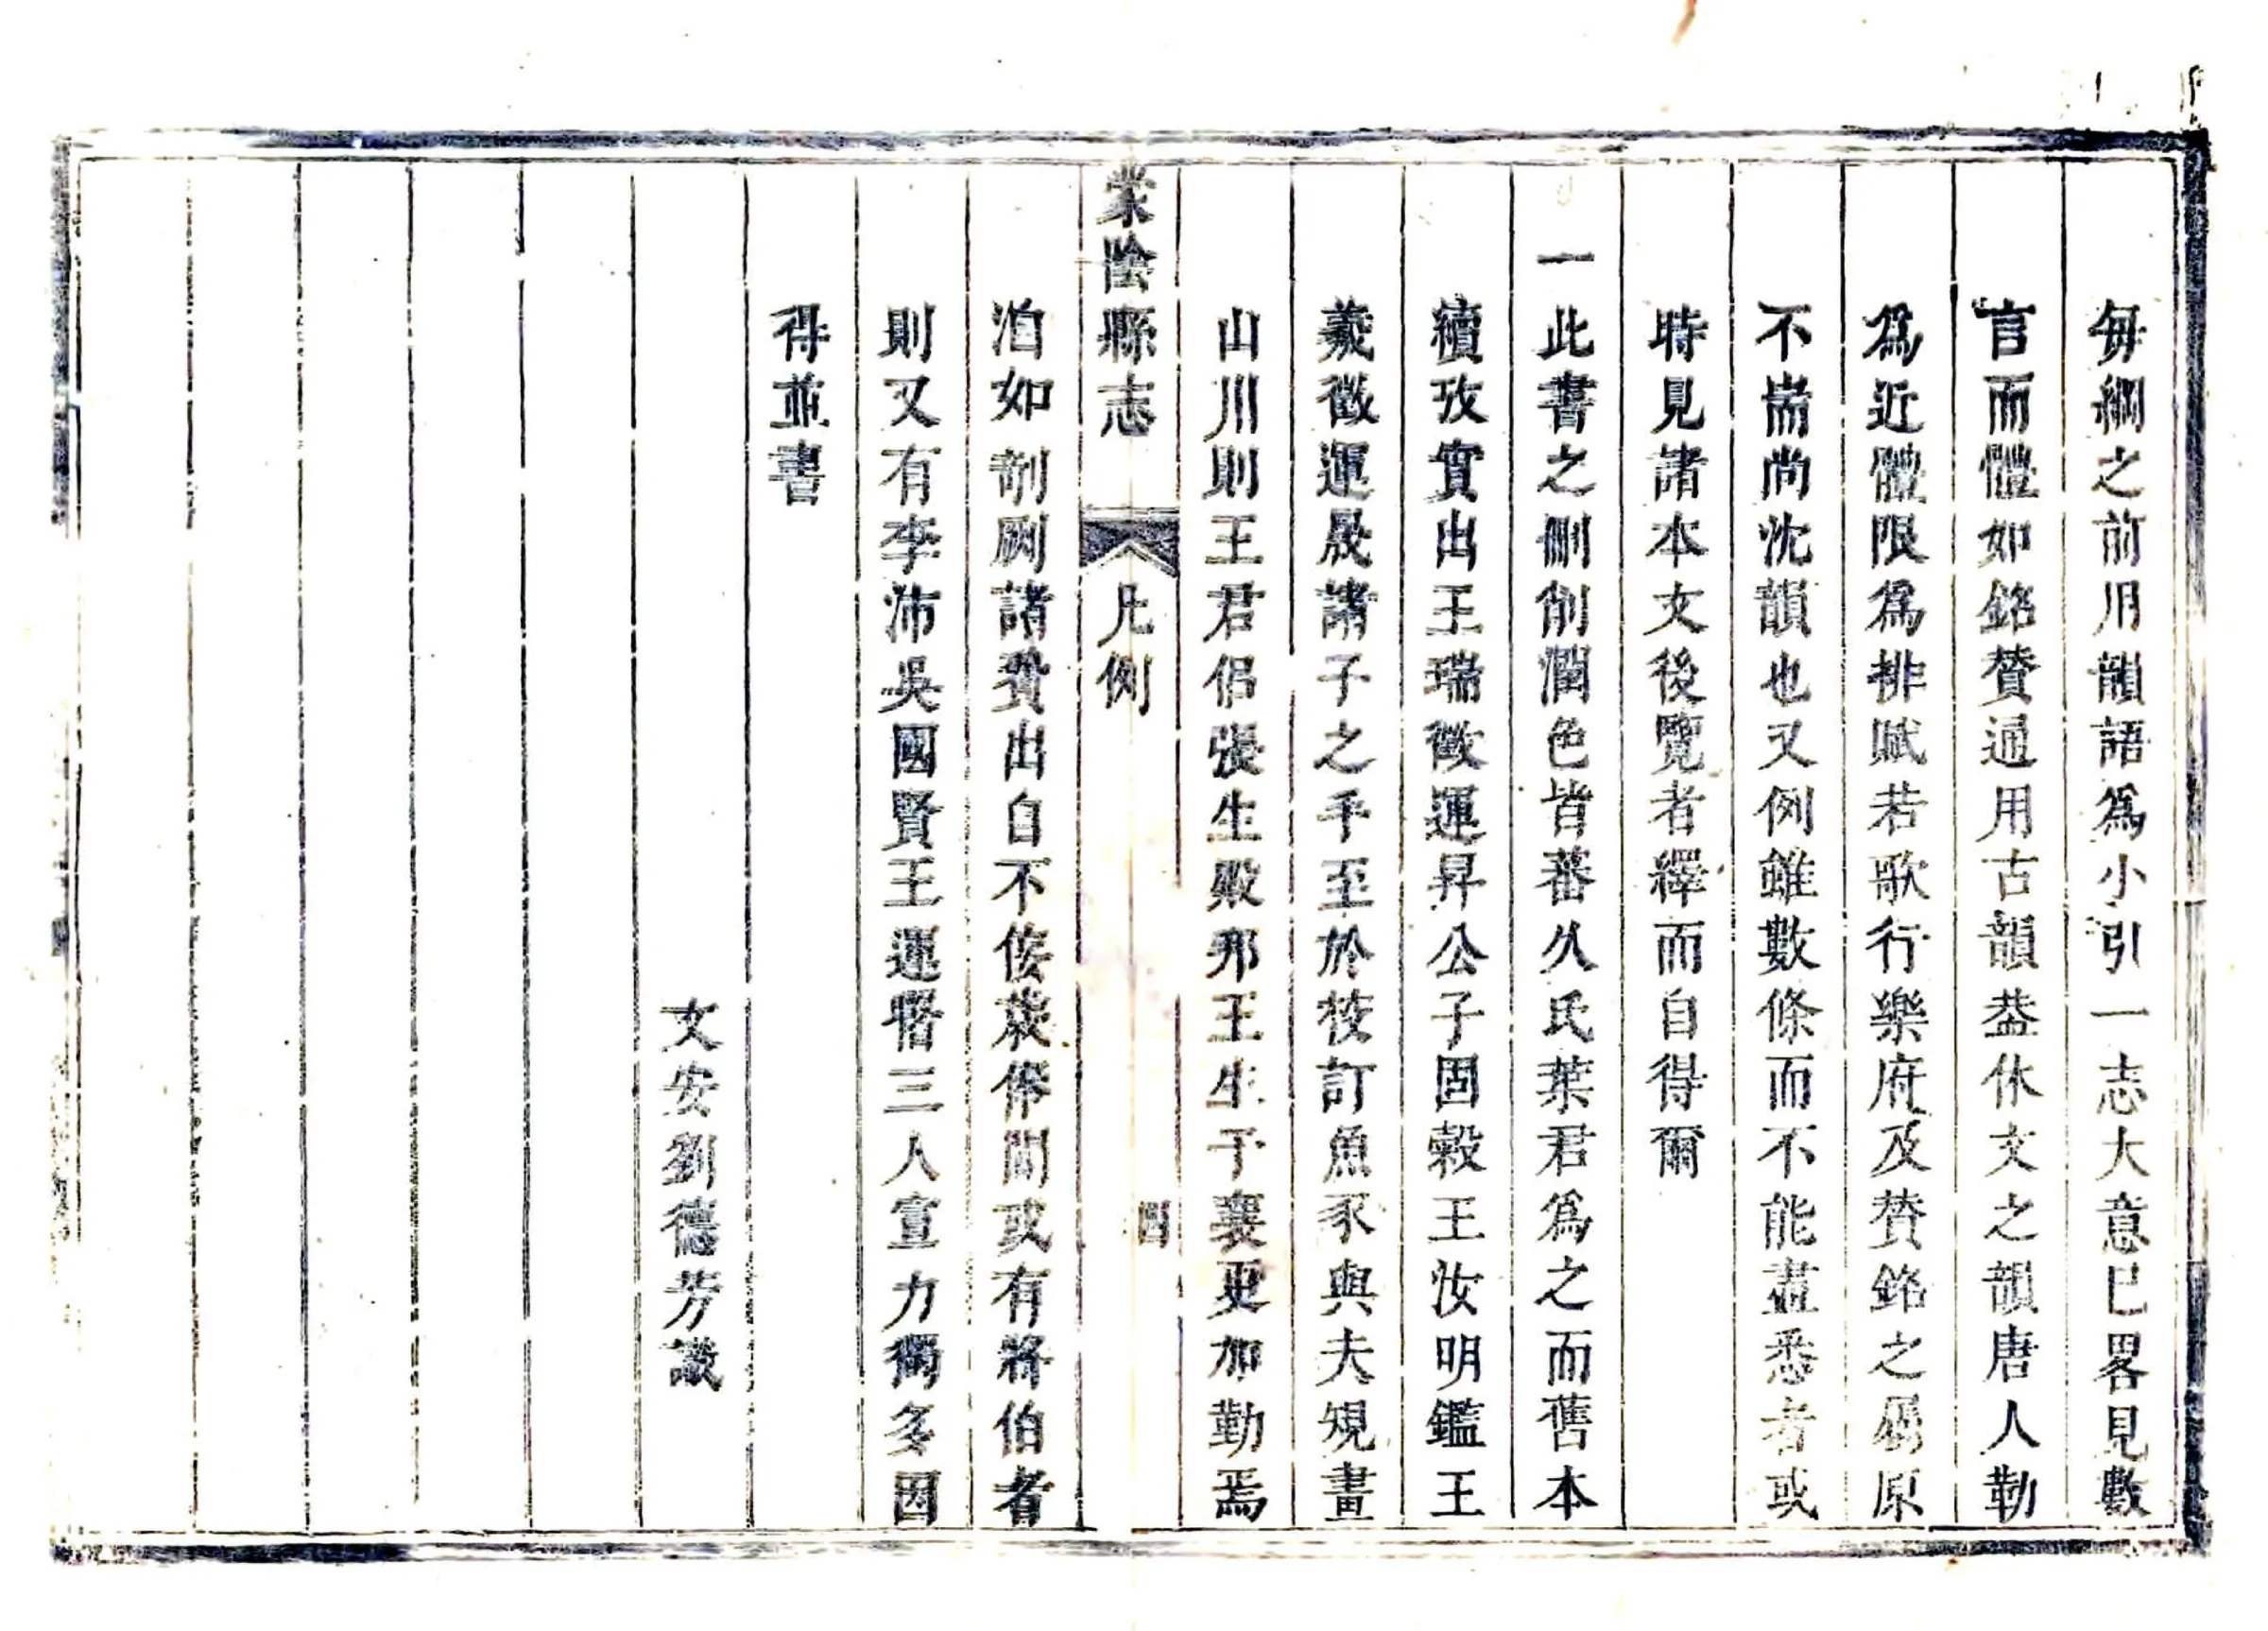 每綱之前用韻語爲小引一志大意已畧見數
言而體如銘贊通用古韻葢休文之韻唐人勒
爲近體限爲排賦若歌行樂府及賛銘之屬原
不耑尚沈韻也又例雖數條而不能盡悉者或
時見諸本文後覽者繹而自得爾
一此書之刪削潤色皆蕃久氏葉君爲之而舊本
續攷實出王瑞徵運昇公子固榖王汝明鑑王
羲徵運晟諸子之手至於挍訂魚豕與夫規畫
山川則王君侶張生殿那王生予襄更加勤焉
洎如剞劂諸費出自不佞歲俸間或有將伯者
則又有李沛吳國賢王運㫺三人宣力獨多因
得並書
文安劉德芳識
蒙陰縣志
凡例
四